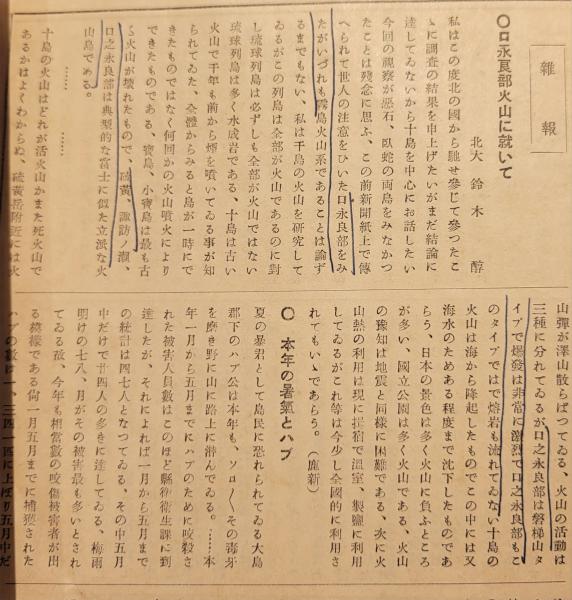 雜報
〇口永良部火山に就いて
北大 鈴木 醇
私はこの度北の國から馳せ參じて參つたこ
ゝに調査の結果を申上げたいがまだ結論に
達してゐないから十島を中心にお話したい
今回の視察が惡石、臥蛇の両島をみなかつ
たことは殘念に思ふ、この前新聞紙上で傳
へられて世人の注意をひいた口永良部をみ
たがいづれも霧島火山系であることは論ず
るまでもない、私は千島の火山を研究して
ゐるがこの列島は全部が火山であるのに對
し琉球列島は必ずしも全部が火山ではない
琉球列島は多く水成岩である、十島は古い
火山で千年も前から煙を噴いてゐる事が知
られてゐた、全體からみると島が一時にで
きたものではなく何回かの火山噴火により
できたものである、寶島、小寶島は最も古
い火山が壞れたもので、硫黃、諏訪ノ瀨、
口之永良部は典型的な富士に似た立派な火
山島である。
……
……
十島の火山はどれが活火山かまた死火山で
あるかはよくわからぬ、硫黃岳附近には火
山彈が澤山散らばつてゐる、火山の活動は
三種に分れてゐるが口之永良部は磐梯山タ
イプで爆發は非常に激烈で口之永良部もこ
のタイプではで熔岩も流れてゐない十島の
火山は海から隆起したものでこの中には又
海水のためある程度まで沈下したものであ
らう、日本の景色は多く火山に負ふところ
が多い、國立公園は多く火山である、火山
の豫知は地震と同樣に困難である、次に火
山熱の利用は現に指宿で溫室、製鹽に利用
してゐるがこれ等は今少し全國的に利用さ
れてもいゝであらう。(鹿新)
〇 本年の暑氣とハブ
夏の暴君として島民に恐れられてゐる大島
郡下のハブ公は本年も、ソロ〳〵その毒牙
を磨き野に山に路上に潜んでゐる。……本
年一月から五月までにハブのために咬殺さ
れた被害人員數はこのほど縣衞生課に到
達したが、それによれば一月から五月まで
の統計は四七人となつてゐる、その中五月
中だけで廿四人の多きに達してゐる、梅雨
明けの七八、月がその被害最も多いとされ
てゐる故、今年も相當數の咬傷被害者が出
る模樣である尙一月五月までに捕獲された
ハブの數は一、三四一四に上ばり五月中だ